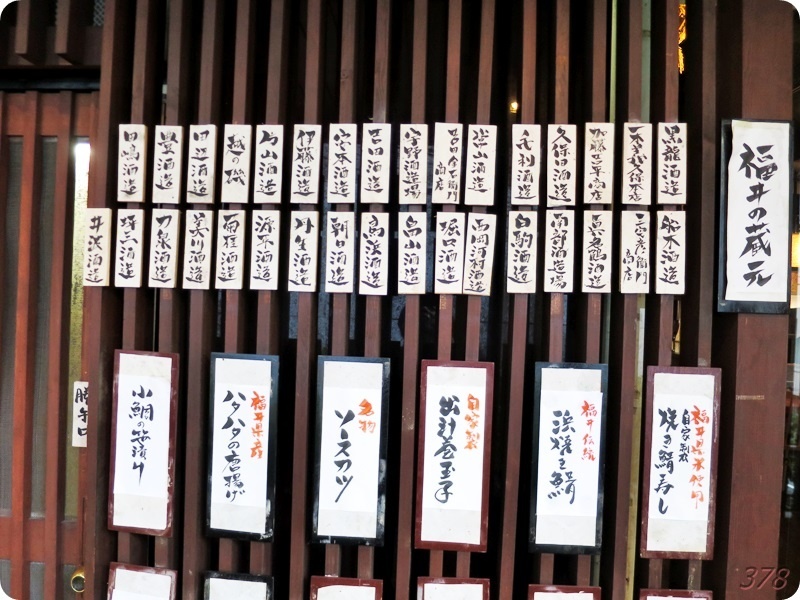 福井の蔵元
黒龍酒造
一本義久保本店
加藤吉平商店
久保田酒造
毛利酒造
吉田金右衛門商店
宇野酒造場
吉田酒造
安本酒造
伊藤酒造
越の磯
田辺酒造
豊酒造
田嶋酒造
舩木酒造
真名鶴酒造
南部酒造場
白駒酒造
西岡河村酒造
堀口酒造
畠山酒造
高浜酒造
朝日酒造
丹生酒造
源平酒造
雨程酒造
美川酒造
力泉酒造
井波酒造
福井県米使用
自家製〆
焼き鯖寿し
福井伝統
浜焼き鯖
自家製
出汁巻玉子
名物
ソースカツ
福井県産
ハタハタの唐揚げ
小鯛の笹漬け
勝手口
378